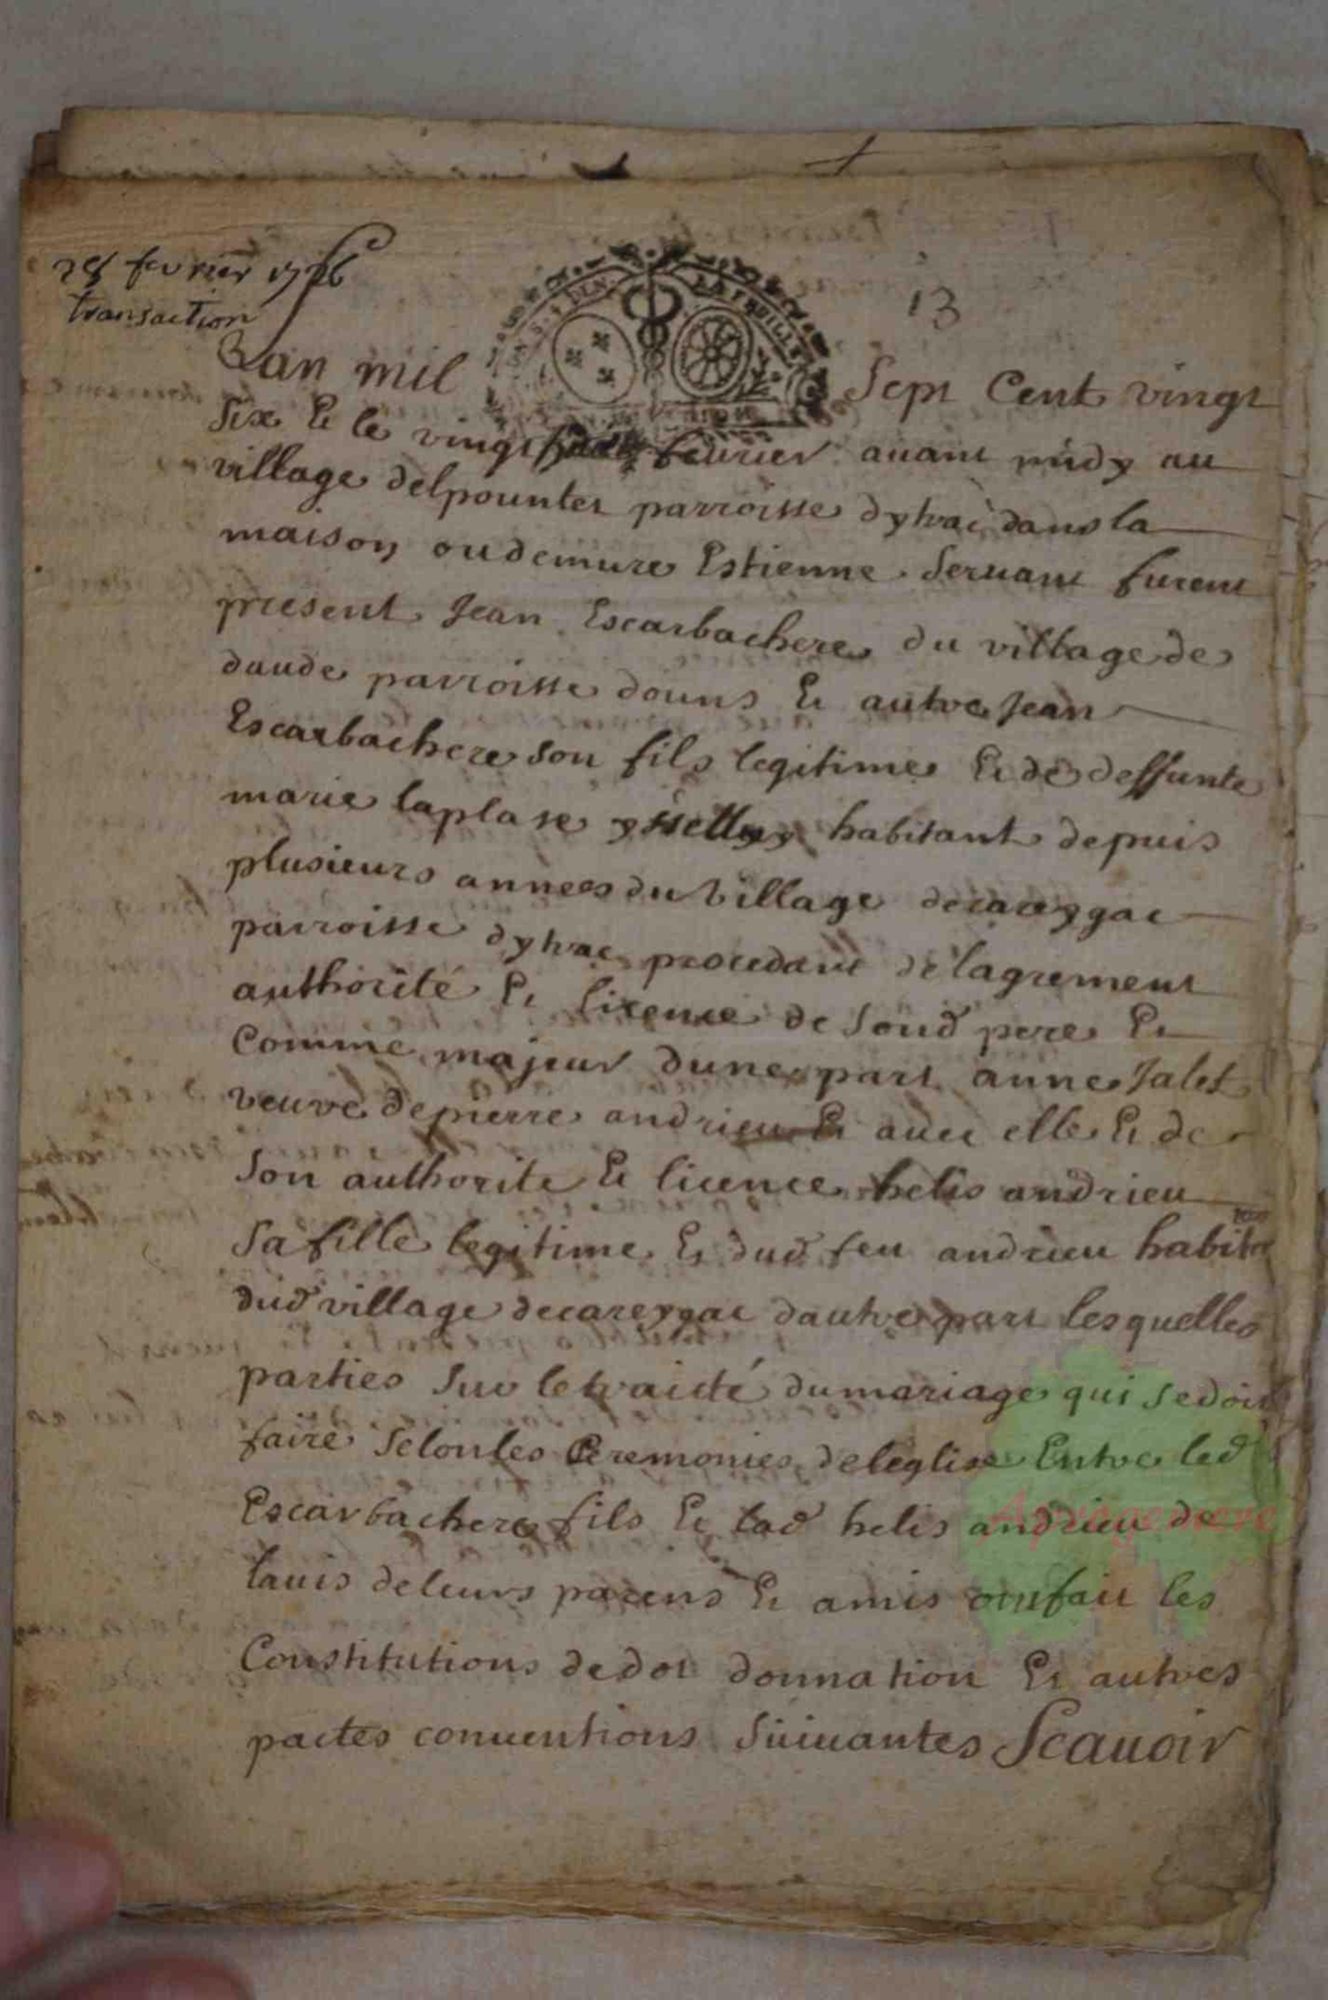 28 fevrier 1726
transaction
13
Lan mil Sept Cent vingt
Six Et le vingt huit fevrier avant midy au
village delpountet parroisse dytrac dans la
maison ou demure Estienne Servant furent
present Jean Escarbachere du village de
daude parroisse douns Et autre Jean
Escarbachere son fils legitime Et de deffunte
marie laplase habitant depuis
plusieurs annees du village decareygac
parroisse dytrac procedant de lagrement
authorité Et lixence de soud pere Et
Comme majeur dune part anne Jalet
veuve de pierre andrieu Et avec elle Et de
Son authorite Et licence helis andrieu
Sa fille legitime Et dud feu andrieu habit
dud village decareygac dautre part lesquelles
parties Sur le traicté du mariage qui se doit
faire Selon les Ceremonies de leglise Entre led
Escarbachere fils Et lad helis andrieu de
lavis de leurs parens Et amis ont fait les
Constitutions de dot donnation Et autres
pactes conventions Suivantes Scavoir